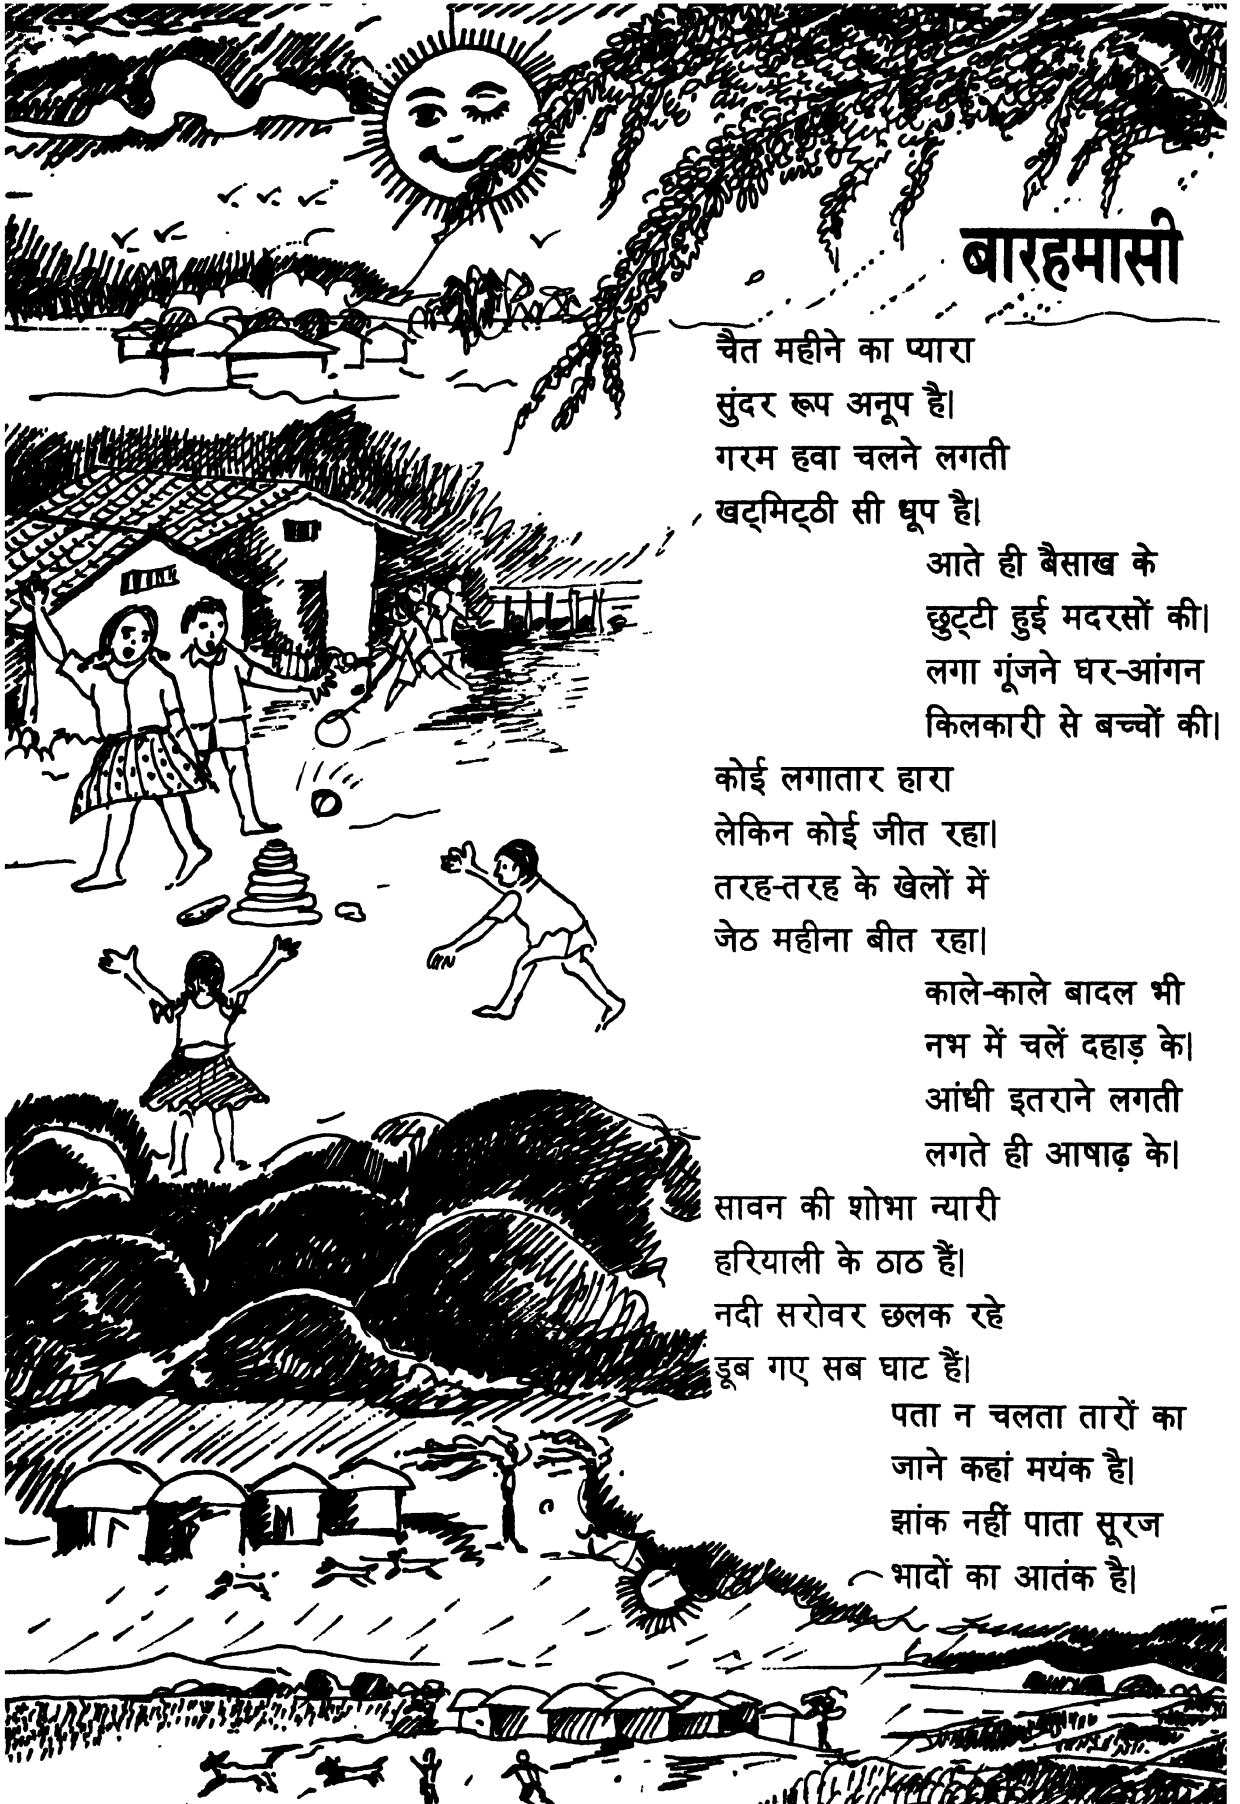 बारहमासी
चैत महीने का प्यारा
सुंदर रूप अनूप है|
गरम हवा चलने लगती
खट्मिट्ठी सी धूप है|
आते ही बैसाख के
छुट्टी हुई मदरसों की|
लगा गूंजने घर-आंगन
किलकारी से बच्चों की|
कोई लगातार हारा
लेकिन कोई जीत रहा|
तरह-तरह के खेलों में
जेठ महीना बीत रहा|
काले-काले बादल भी
नभ में चलें दहाड़ के|
आंधी इतराने लगती
लगते ही आषाढ़ के|
सावन की शोभा न्यारी
हरियाली के ठाठ हैं|
नदी सरोवर छलक रहे
डूब गए सब घाट हैं|
पता न चलता तारों का
जाने कहां मयंक है|
झांक नहीं पाता सूरज
भादों का आतंक है|